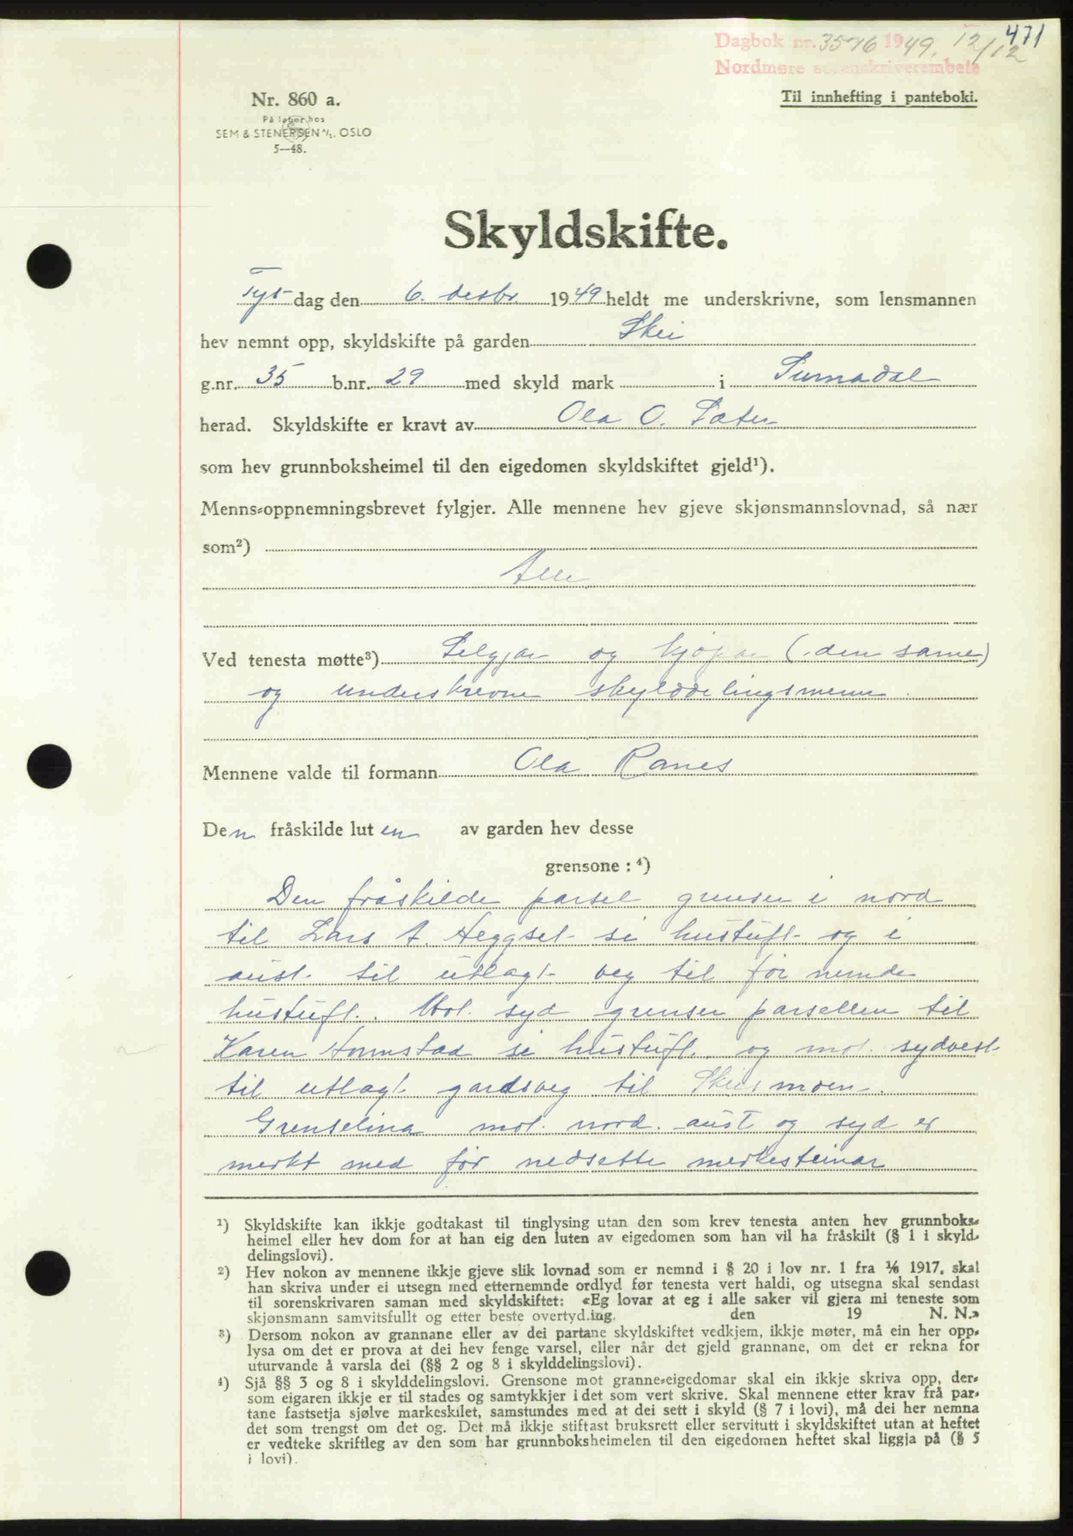 471
Dagbok nr. 3576 1949. 12/12
Nordmøre sorenskriverembete
Til innhefting i panteboki.
Nr. 860 a.
På lager hos
SEM & STENERSEN A/S, OSLO
5—48.
Skyldskifte.
Tys dag den 6. desbr 1949 heldt me underskrivne, som lensmannen
hev nemnt opp, skyldskifte på garden Skei
g.nr. 35 b.nr. 29 med skyld mark i Surnadal
herad. Skyldskifte er kravt av Ola O. Sæter
som hev grunnboksheimel til den eigedomen skyldskiftet gjeld¹).
Menns-oppnemningsbrevet fylgjer. Alle mennene hev gjeve skjønsmannslovnad, så nær
som²)
Alle
Ved tenesta møtte³) Selgjar og kjøpar (den same)
og underskrevne skylddelingsmenn.
Mennene valde til formann Ola Ranes
Den fråskilde luten av garden hev desse
grensone : ⁴)
Den fråskilde parsel grenser i nord
til Lars A. Heggset si hustuft og i
aust til utlagt veg til før nemde
hustuft. Mot syd grenser parsellen til
Karen Honnstad si hustuft og mot sydvest
til utlagt gardsveg til Skeismoen.
Grenselina mot nord. aust og syd er
merkt med før nedsette merkesteinar
¹) Skyldskifte kan ikkje godtakast til tinglysing utan den som krev tenesta anten hev grunnboks-
heimel eller hev dom for at han eig den luten av eigedomen som han vil ha fråskilt (§ 1 i skyld-
delingslovi).
²) Hev nokon av mennene ikkje gjeve slik lovnad som er nemnd i § 20 i lov nr. 1 fra 1/6 1917, skal
han skriva under ei utsegn med etternemnde ordlyd før tenesta vert haldi, og utsegna skal sendast
til sorenskrivaren saman med skyldskiftet: «Eg lovar at eg i alle saker vil gjera mi teneste som
skjønsmann samvitsfullt og etter beste overtyding. den 19 N. N.»
³) Dersom nokon av grannane eller av dei partane skyldskiftet vedkjem, ikkje møter, må ein her opp-
lysa om det er prova at dei hev fenge varsel, eller når det gjeld grannane, om det er rekna for
uturvande å varsla dei (§§ 2 og 8 i skylddelingslovi).
⁴) Sjå §§ 3 og 8 i skylddelingslovi. Grensone mot granne-eigedomar skal ein ikkje skriva opp, der-
som eigaren ikkje er til stades og samtykkjer i det som vert skrive. Skal mennene etter krav frå par-
tane fastsetja sjølve markeskilet, samstundes med at dei sett i skyld (§ 7 i lovi), må dei her nemna
det som trengst om det og. Det må ikkje stiftast bruksrett eller servitutt i skyldskiftet utan at heftet
er vedteke skriftleg av den som har grunnboksheimelen til den eigedomen heftet skal liggja på (§ 5
i lovi).